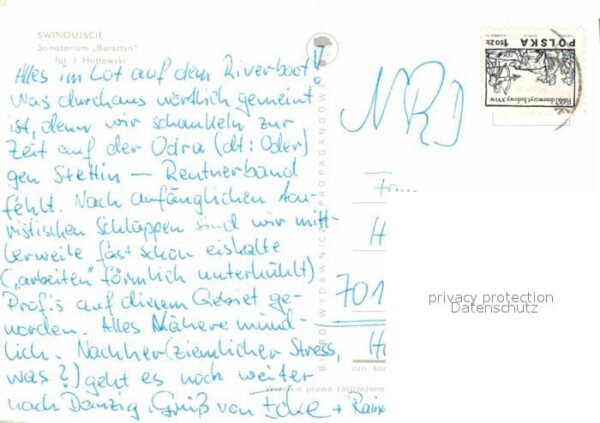 SWINOUJSCIE
Sanatorium „Bursztyn”
fot. J. Hattowski
Alles im Lot auf dem Riverboot!
Was durchaus wörtlich gemeint
ist, denn wir schaukeln zur
Zeit auf der Odra (dt: Oder)
gen Stettin — Rentnerband
fehlt. Nach anfänglichen tou-
ristischen Schlappen sind wir mitt-
lerweile fast schon eiskalte
(„arbeiten” förmlich unterkühlt)
Prof's auf diesem Gebiet ge-
worden. Alles Nähere münd-
lich. Nachher (ziemlicher Stress,
was?) geht es noch weiter
nach Danzig. Gruß von Ecke + Rain
BIURO WYDAWNICZO PROPAGANDOWE
POLSKA
1.50 ZŁ
NRD
H
701
privacy protection
Datenschutz
prawa zastrzeżone